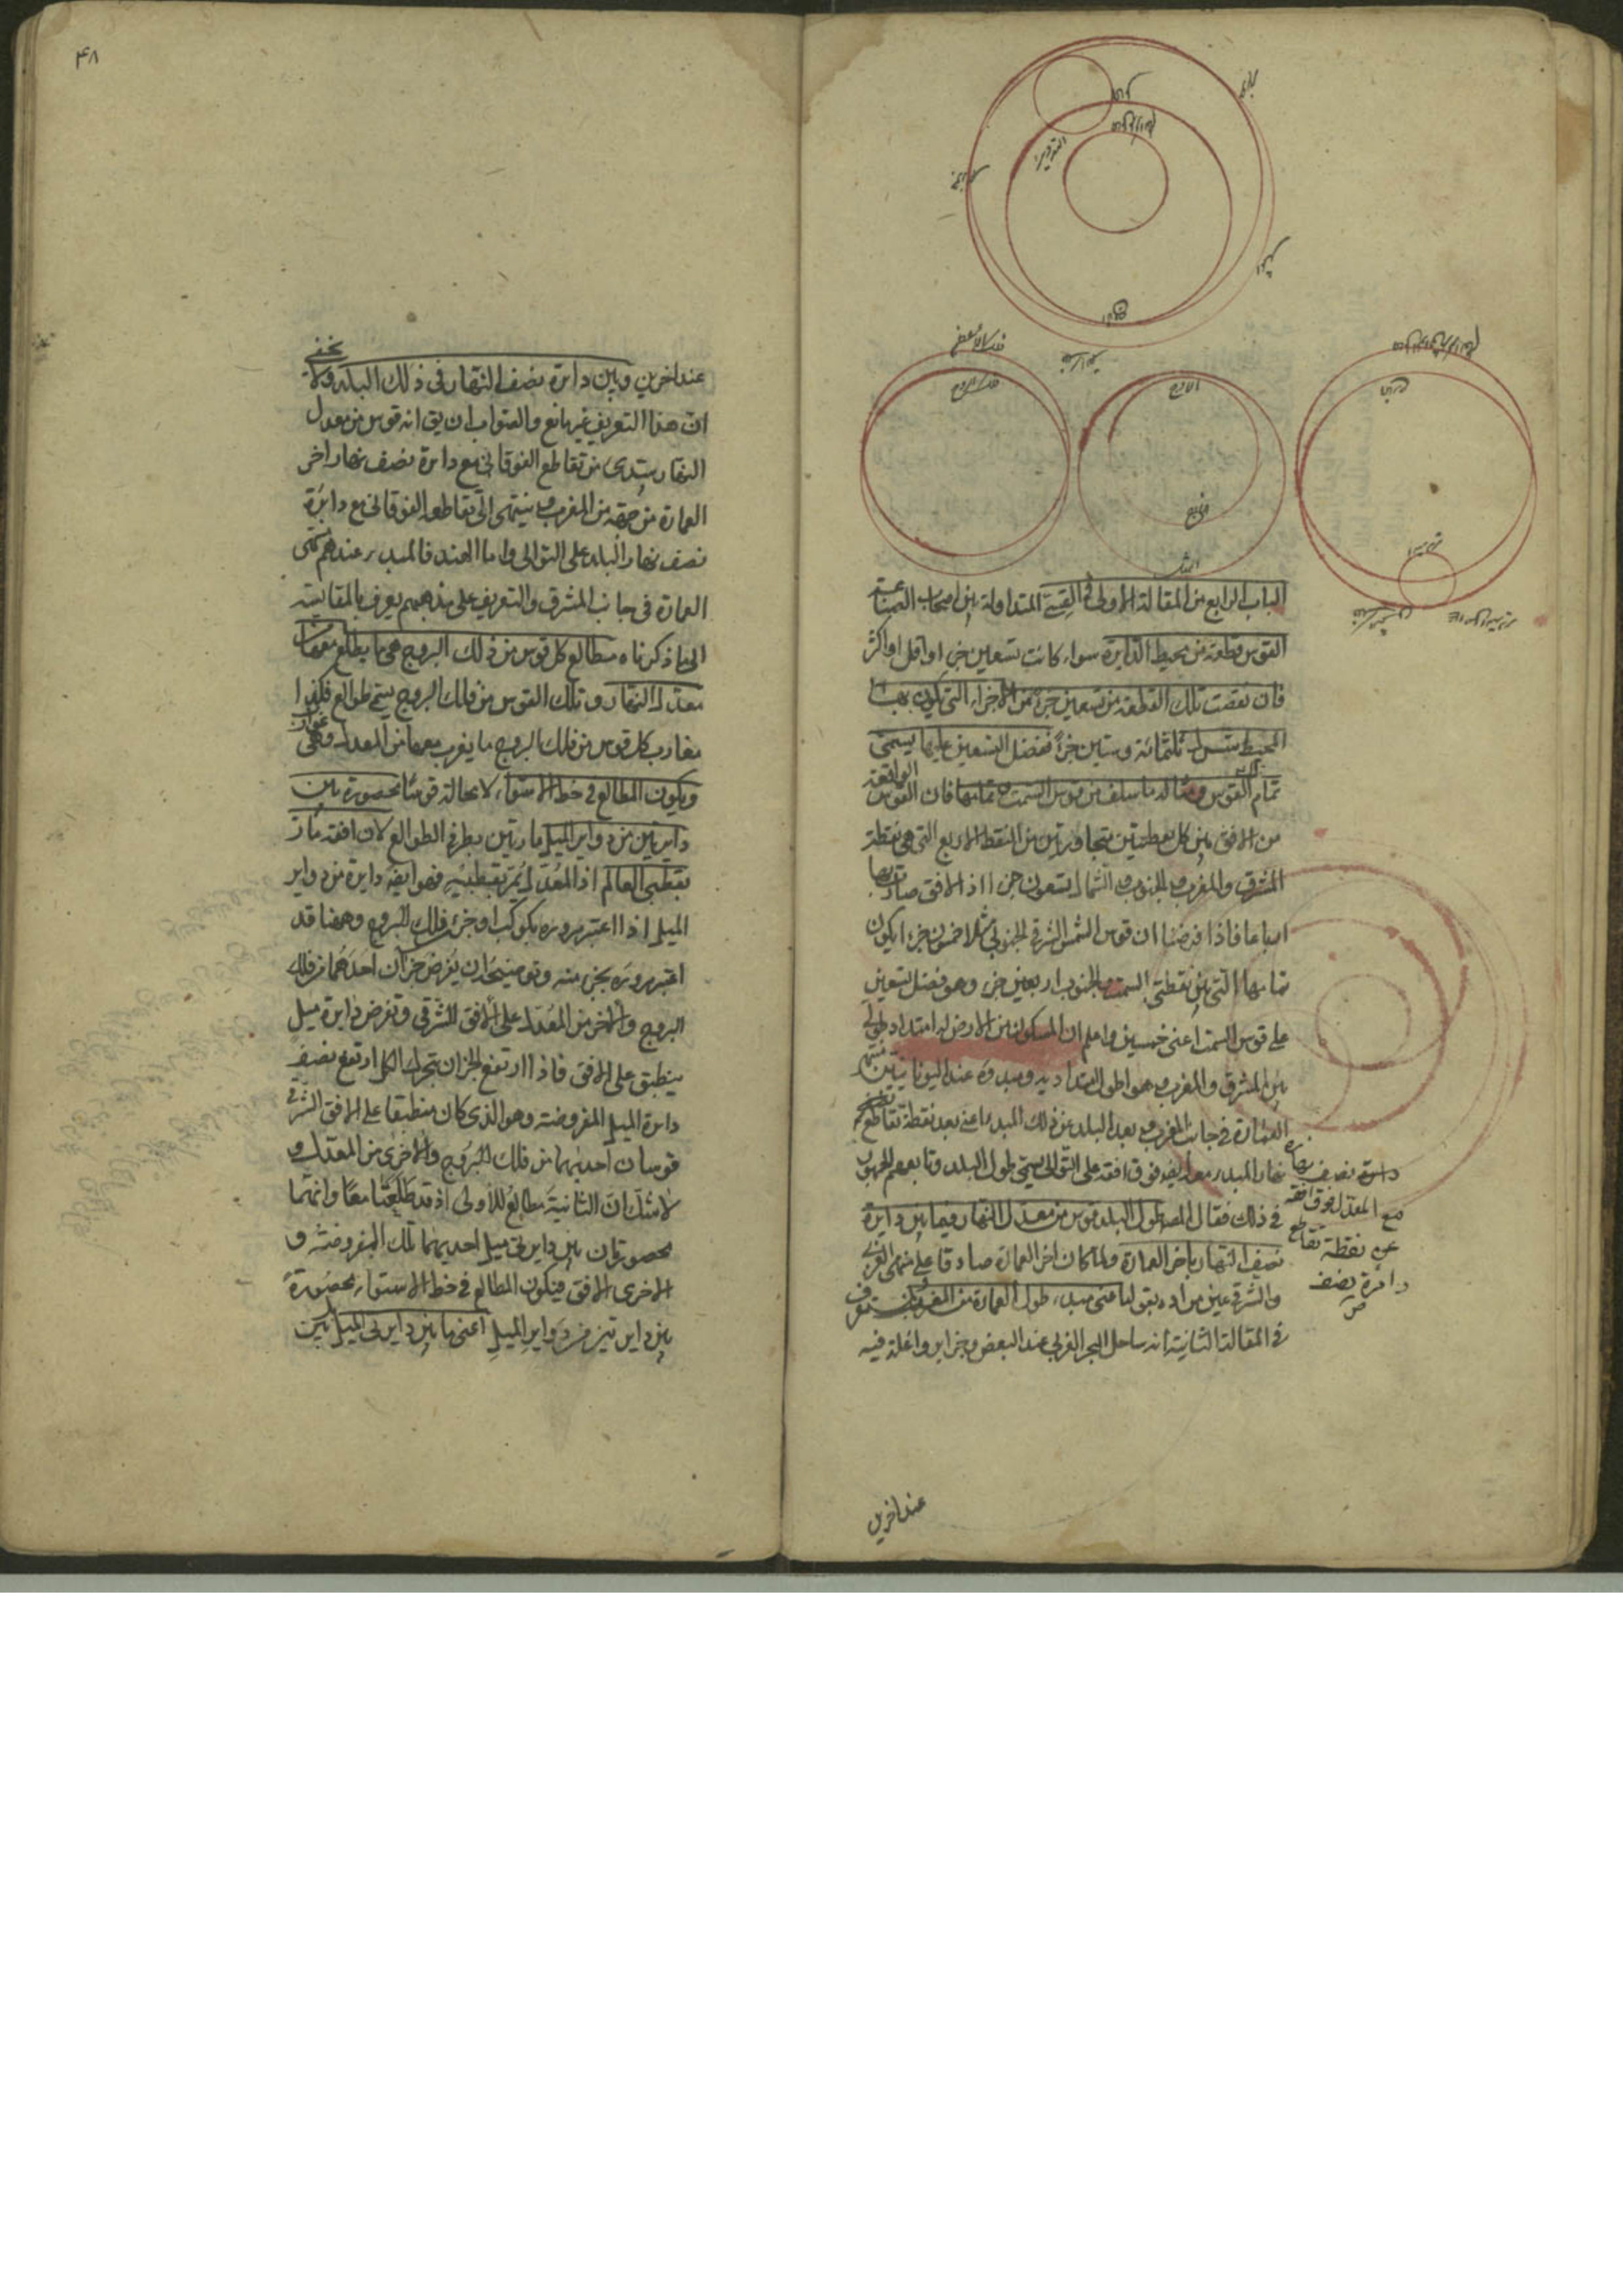 الباب الرابع من المقالة الاولى فى القسى المتداولة بين اصحاب الصناعة
القوس قطعة من محيط الدايرة سواء كانت تسعين جزءا او اقل او اكثر
فان نقصت تلك القطعة من تسعين جزءا من الاجزاء التى يكون بها
المحيط ثلثمائة وستين جزءا ففضل التسعين عليها يسمى
تمام القوس ومثاله ما سلف من قوس السمت وتمامها فان القوس الواقعة
من الافق بين كل نقطتين متجاورتين من النقط الاربع التى هى نقطة
المشرق والمغرب والجنوب والشمال تسعون جزءا اذ الافق صار بها
ارباعا فاذا فرضنا ان قوس السمت الشرقى الجنوبى مثلا خمسون جزءا يكون
تمامها التى بين نقطتى السمت والجنوب اربعين جزءا وهو فضل التسعين
على قوس السمت اعنى خمسين واعلم ان المسكون من الارض له امتداد طولى
بين المشرق والمغرب وهو اطول امتداديه ومبدؤه عند اليونانيين منتهى
العمارة فى جانب المغرب وبعد البلد عن ذلك المبدء اعنى بعد نقطة تقاطع
نهار المبدء معه ايضا فوق افقه على التوالى يسمى طول البلد وتابعهم الجمهور
فى ذلك فقال المص طول البلد قوس من معدل النهار فيما بين دايرة
نصف النهار باخر العمارة ولما كان اخر العمارة صادقا على منتهى الغربى
والشرقى عين مراده بقوله اعنى مبدء طول العمارة من المغرب وستعرف
فى المقالة الثانية انه ساحل البحر الغربى عند البعض وجزاير واغلة فيه
دايرة نصف نهاره
مع المعدل فوق افقه
عن نقطة تقاطع
دايرة نصف
عند اخرين
۴۸
عند اخرين وبين دايرة نصف النهار فى ذلك البلد ولا يخفى
ان هذا التعريف غير مانع والصواب ان يق انه قوس من معدل
النهار يبتدئ من تقاطع الفوقانى مع دايرة نصف نهار اخر
العمارة من جهة المغرب وينتهى الى تقاطعه الفوقانى مع دايرة
نصف نهار البلد على التوالى واما الهند فالمبدء عندهم منتهى
العمارة فى جانب المشرق والتعريف على مذهبهم يعرف بالمقايسة
الى ما ذكرناه مطالع كل قوس من فلك البروج هى ما يطلع معها من
معدل النهار وتلك القوس من فلك البروج يسمى طوالع فكذا
مغارب كل قوس من فلك البروج ما يغرب معها من المعدل وهى غوارب
ويكون المطالع فى خط الاستواء لا محالة قوسا محصورة بين
دايرتين من دواير الميل مارتين بطرفى الطوالع لان افقه مارة
بقطبى العالم اذ المعدل يمر بقطبيه فهو ايضا دايرة من دواير
الميل اذا اعتبر مروره بكوكب او جزء من فلك البروج وههنا قد
اعتبر مروره بجزء منه وتوضيحه ان يفرض جزآن احدهما من فلك
البروج والاخر من المعدل على الافق الشرقى وتفرض دايرة ميل
ينطبق على الافق فاذا ارتفع الجزان بتحرك الكل ارتفع نصف
دايرة الميل المفروضة وهو الذى كان منطبقا على الافق الشرقى
قوسان احديهما من فلك البروج والاخرى من المعدل و
لا شك ان الثانية مطالع للاولى اذ قد طلعتا معا وانهما
محصورتان بين دايرتى ميل احديهما تلك المفروضة و
الاخرى الافق فيكون المطالع فى خط الاستواء محصورة
بين دايرتين من دواير الميل اعنى ما بين دايرتى الميل بين